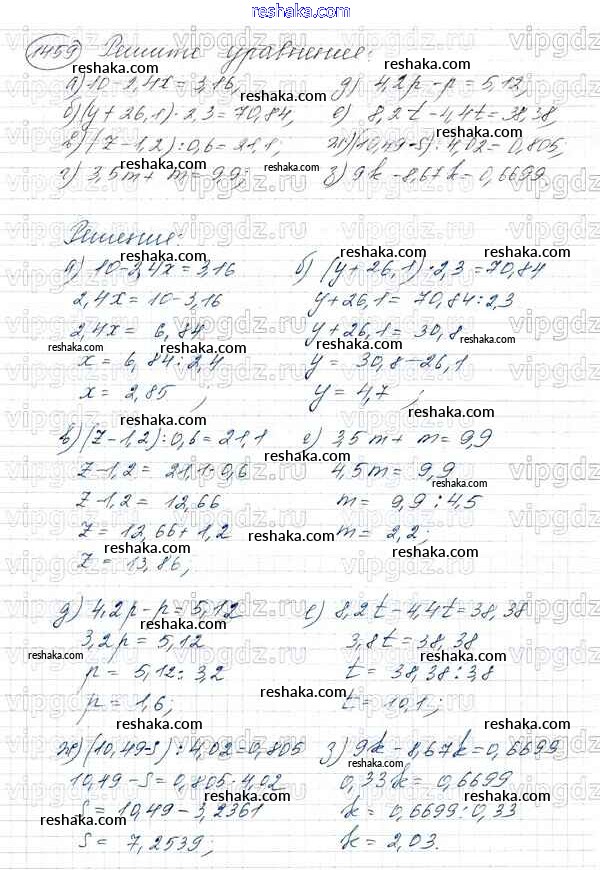 reshaka.ru
1459 Решите уравнение:
а) 10-2,4x = 3,16, д) 4,2p-p = 5,12,
б) (y+26,1)·2,3 = 70,84, е) 8,2t-4,4t = 38,38,
в) (z-1,2):0,6 = 21,1; ж) (10,49-s):4,02 = 0,805,
г) 3,5m+m = 9,9; з) 9k-8,67k = 0,6699.
Решение:
а) 10-2,4x = 3,16 б) (y+26,1)·2,3 = 70,84
2,4x = 10-3,16 y+26,1 = 70,84:2,3
2,4x = 6,84 y+26,1 = 30,8
x = 6,84:2,4 y = 30,8-26,1
x = 2,85; y = 4,7;
в) (z-1,2):0,6 = 21,1 г) 3,5m+m = 9,9
z-1,2 = 21,1·0,6 4,5m = 9,9
z-1,2 = 12,66 m = 9,9:4,5
z = 12,66+1,2 m = 2,2;
z = 13,86;
д) 4,2p-p = 5,12 е) 8,2t-4,4t = 38,38
3,2p = 5,12 3,8t = 38,38
p = 5,12:3,2 t = 38,38:3,8
p = 1,6; t = 10,1;
ж) (10,49-s):4,02 = 0,805 з) 9k-8,67k = 0,6699
10,49-s = 0,805·4,02 0,33k = 0,6699
s = 10,49-3,2361 k = 0,6699:0,33
s = 7,2539; k = 2,03.